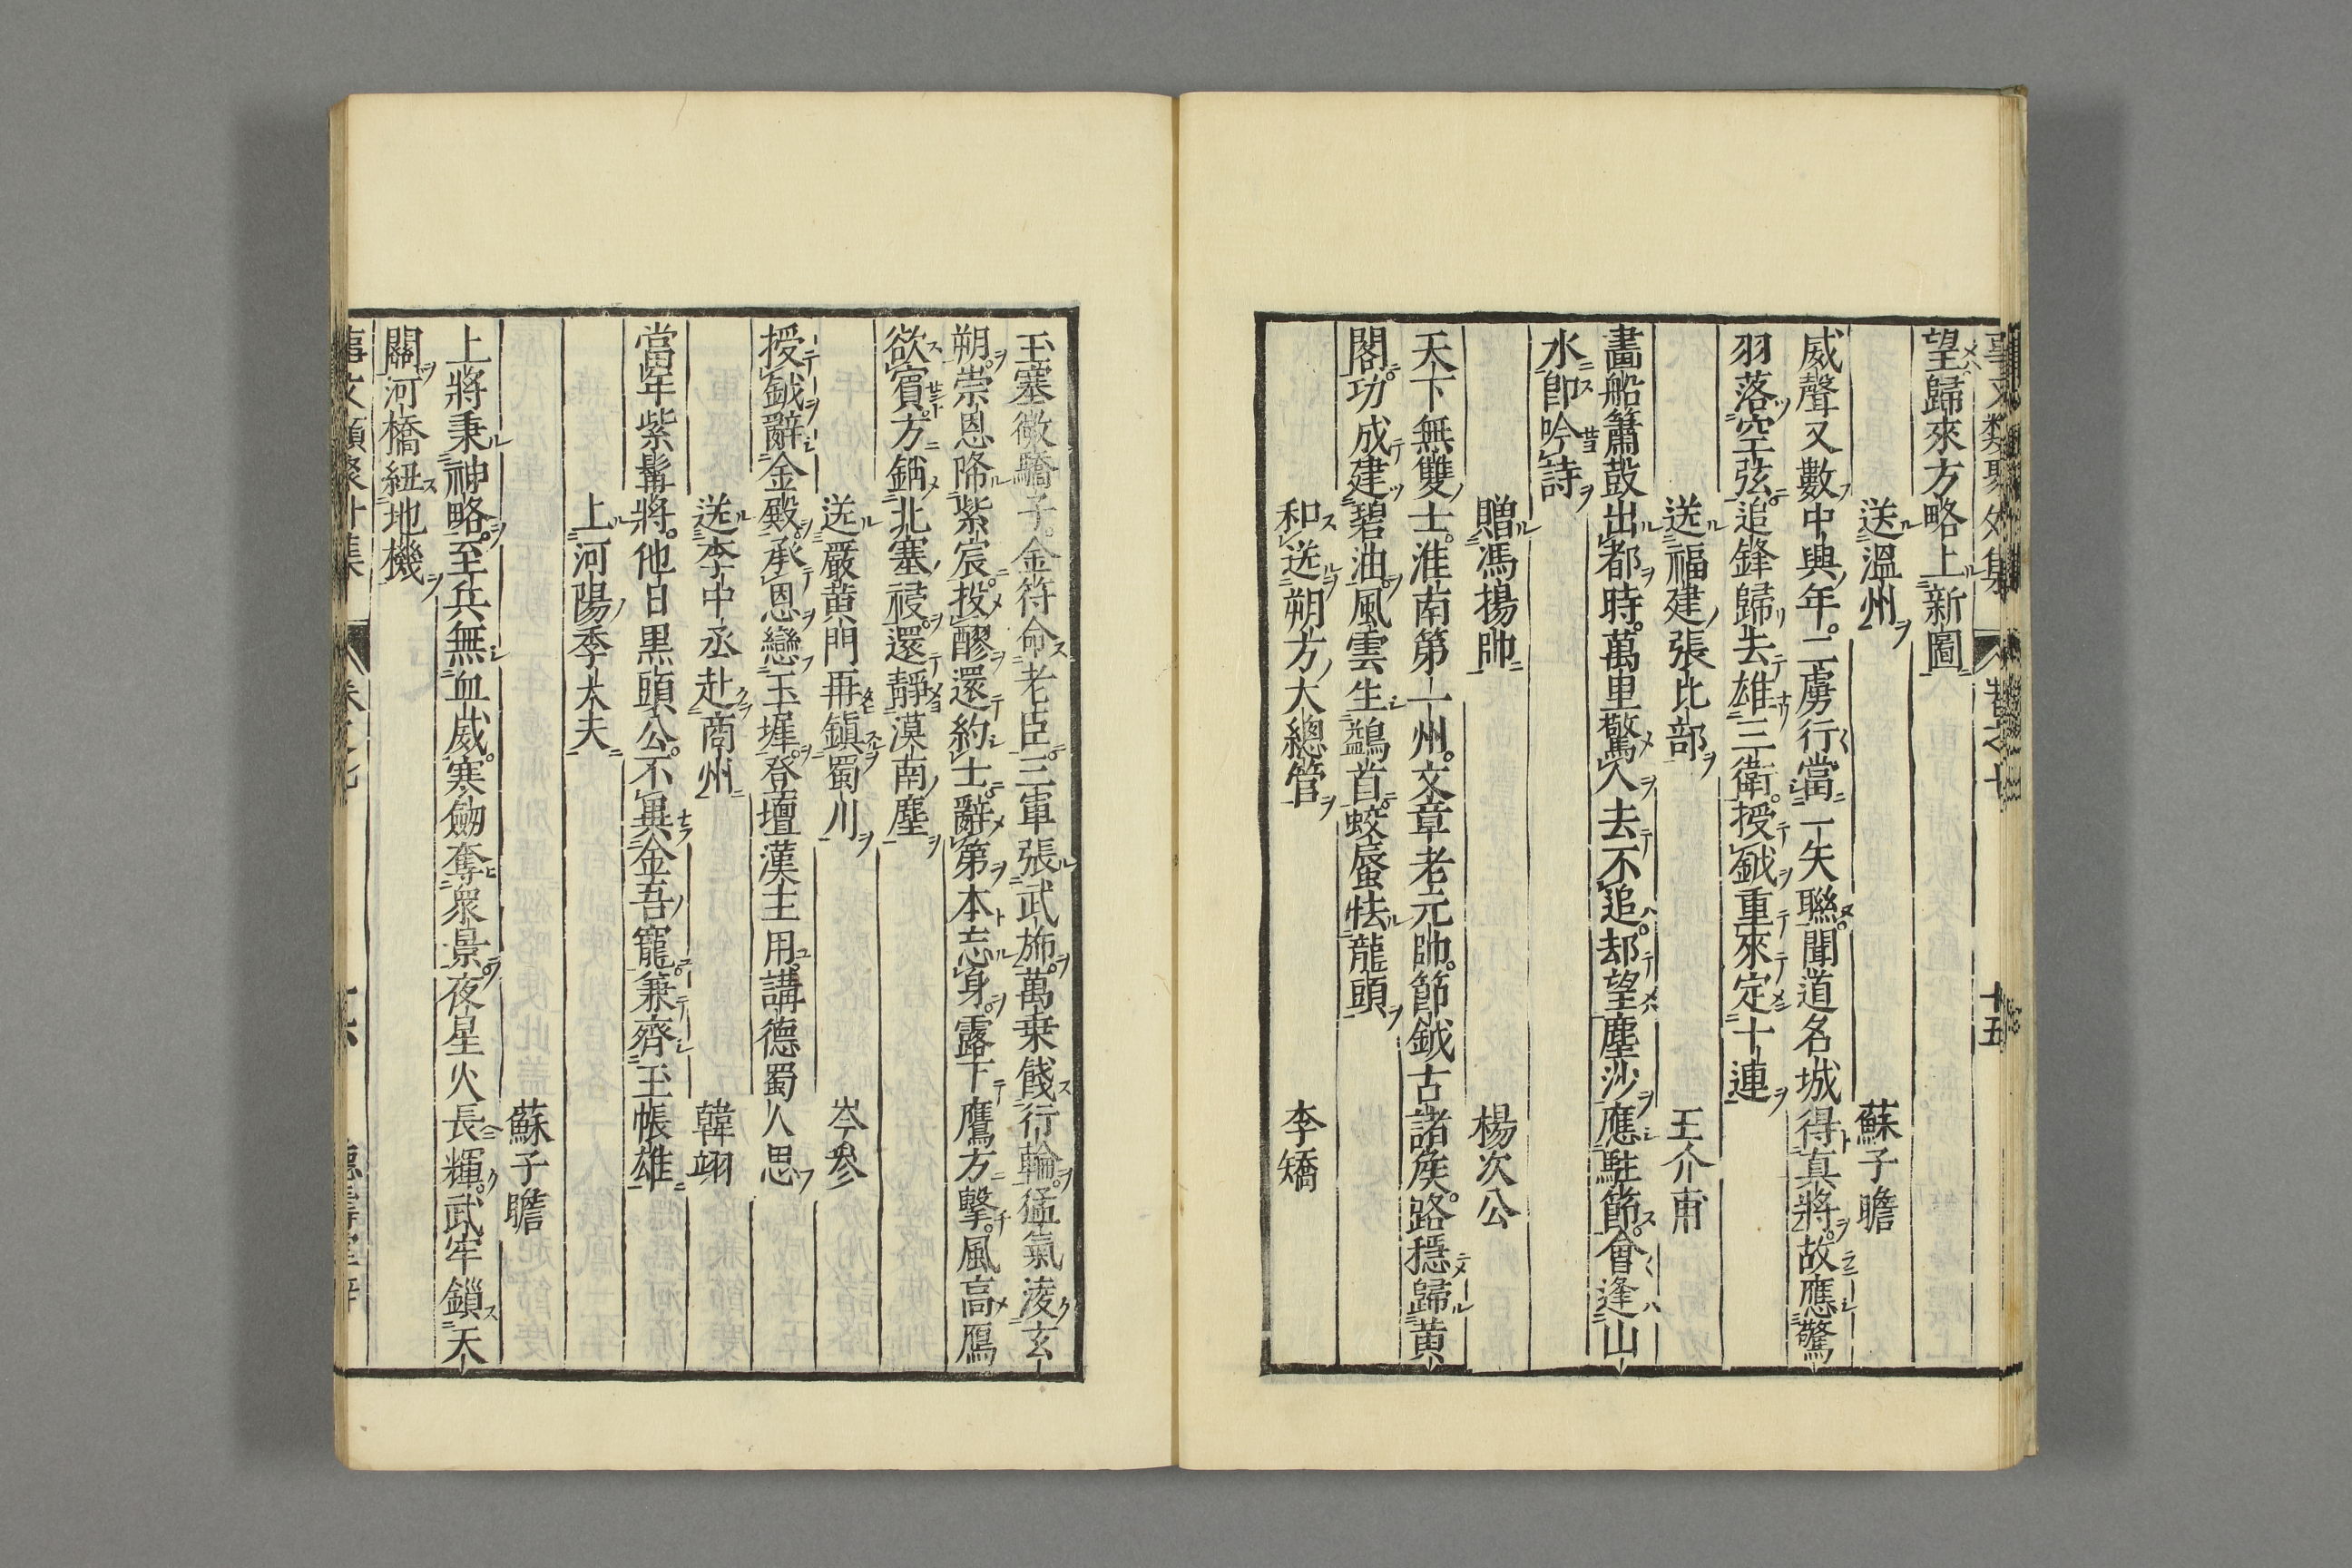 事文類聚外集 卷之七 十五
望歸來方略上新圖
送溫州 蘇子瞻
威聲又數中興年。二虜行當一矢聯。聞道名城得真將。故應驚
羽落空弦。追鋒歸去雄三衛。授鉞重來定十連
送福建張比部 王介甫
畫船簫鼓出都時。萬里驚人去不追。却望塵沙應駐節。會逢山
水即吟詩
贈馮揚帥 楊次公
天下無雙士。淮南第一州。文章老元帥。節鉞古諸侯。路穩歸黃
閣。功成建碧油。風雲生鷁首。蛟蜃怯龍頭
和送朔方大總管 李矯
玉塞徵驕子。金符命老臣。三軍張武斾。萬乗餞行輪。猛氣淩玄
朔。崇恩降紫宸。投醪還約士。辭第本忘身。露下鷹方擊。風高鴈
欲賓。方銷北塞祲。還靜漠南塵
送嚴黃門再鎮蜀川 岑參
授鉞辭金殿。承恩戀玉墀。登壇漢主用。講德蜀人思
送李中丞赴商州 韓翃
當年紫髯將。他日黒頭公。不異金吾寵。兼齊玉帳雄
上河陽李大夫
蘇子瞻
上將秉神略。至兵無血威。寒劒奪衆景。夜星火長輝。武牢鎖天
關。河橋紐地機
事文類聚外集 卷之七